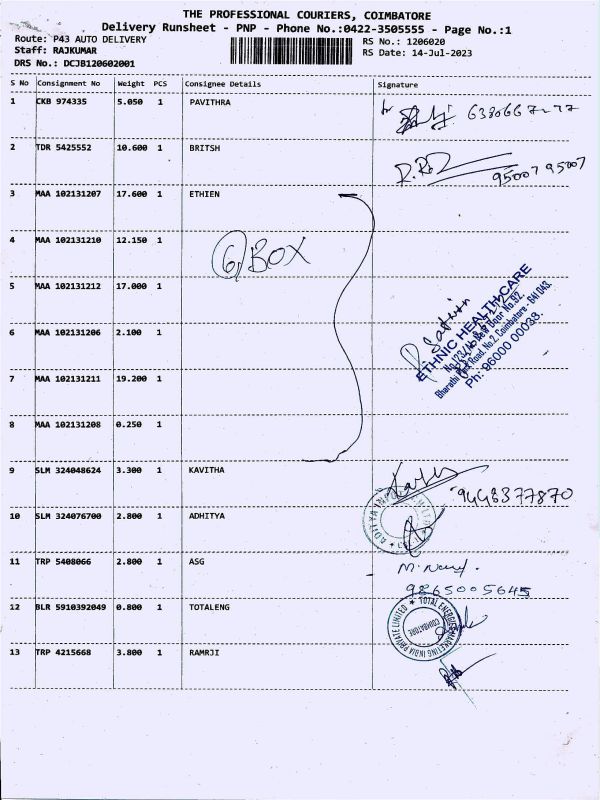 THE PROFESSIONAL COURIERS, COIMBATORE
Delivery Runsheet - PNP - Phone No.:0422-3505555 - Page No.:1
Route: P43 AUTO DELIVERY RS No.: 1206020
Staff: RAJKUMAR RS Date: 14-Jul-2023
DRS No.: DCJB120602001
S No Consignment No Weight PCS Consignee Details Signature
1 CKB 974335 5.050 1 PAVITHRA
2 TDR 5425552 10.600 1 BRITSH
95007 95007
3 MAA 102131207 17.600 1 ETHIEN
4 MAA 102131210 12.150 1
6 BOX
5 MAA 102131212 17.000 1
6 MAA 102131206 2.100 1
7 MAA 102131211 19.200 1
8 MAA 102131208 0.250 1
ETHNIC HEALTHCARE
No.123/4b New Door No.92,
Bharathi Park Road, No.2, Coimbatore - 641 043.
Ph: 96000 00033
9 SLM 324048624 3.300 1 KAVITHA
9448377870
10 SLM 324076700 2.800 1 ADHITYA
11 TRP 5408066 2.800 1 ASG
9865005645
12 BLR 5910392049 0.800 1 TOTALENG
TOTAL ENERGIES MARKETING INDIA PRIVATE LIMITED
COIMBATORE
13 TRP 4215668 3.800 1 RAMRJI